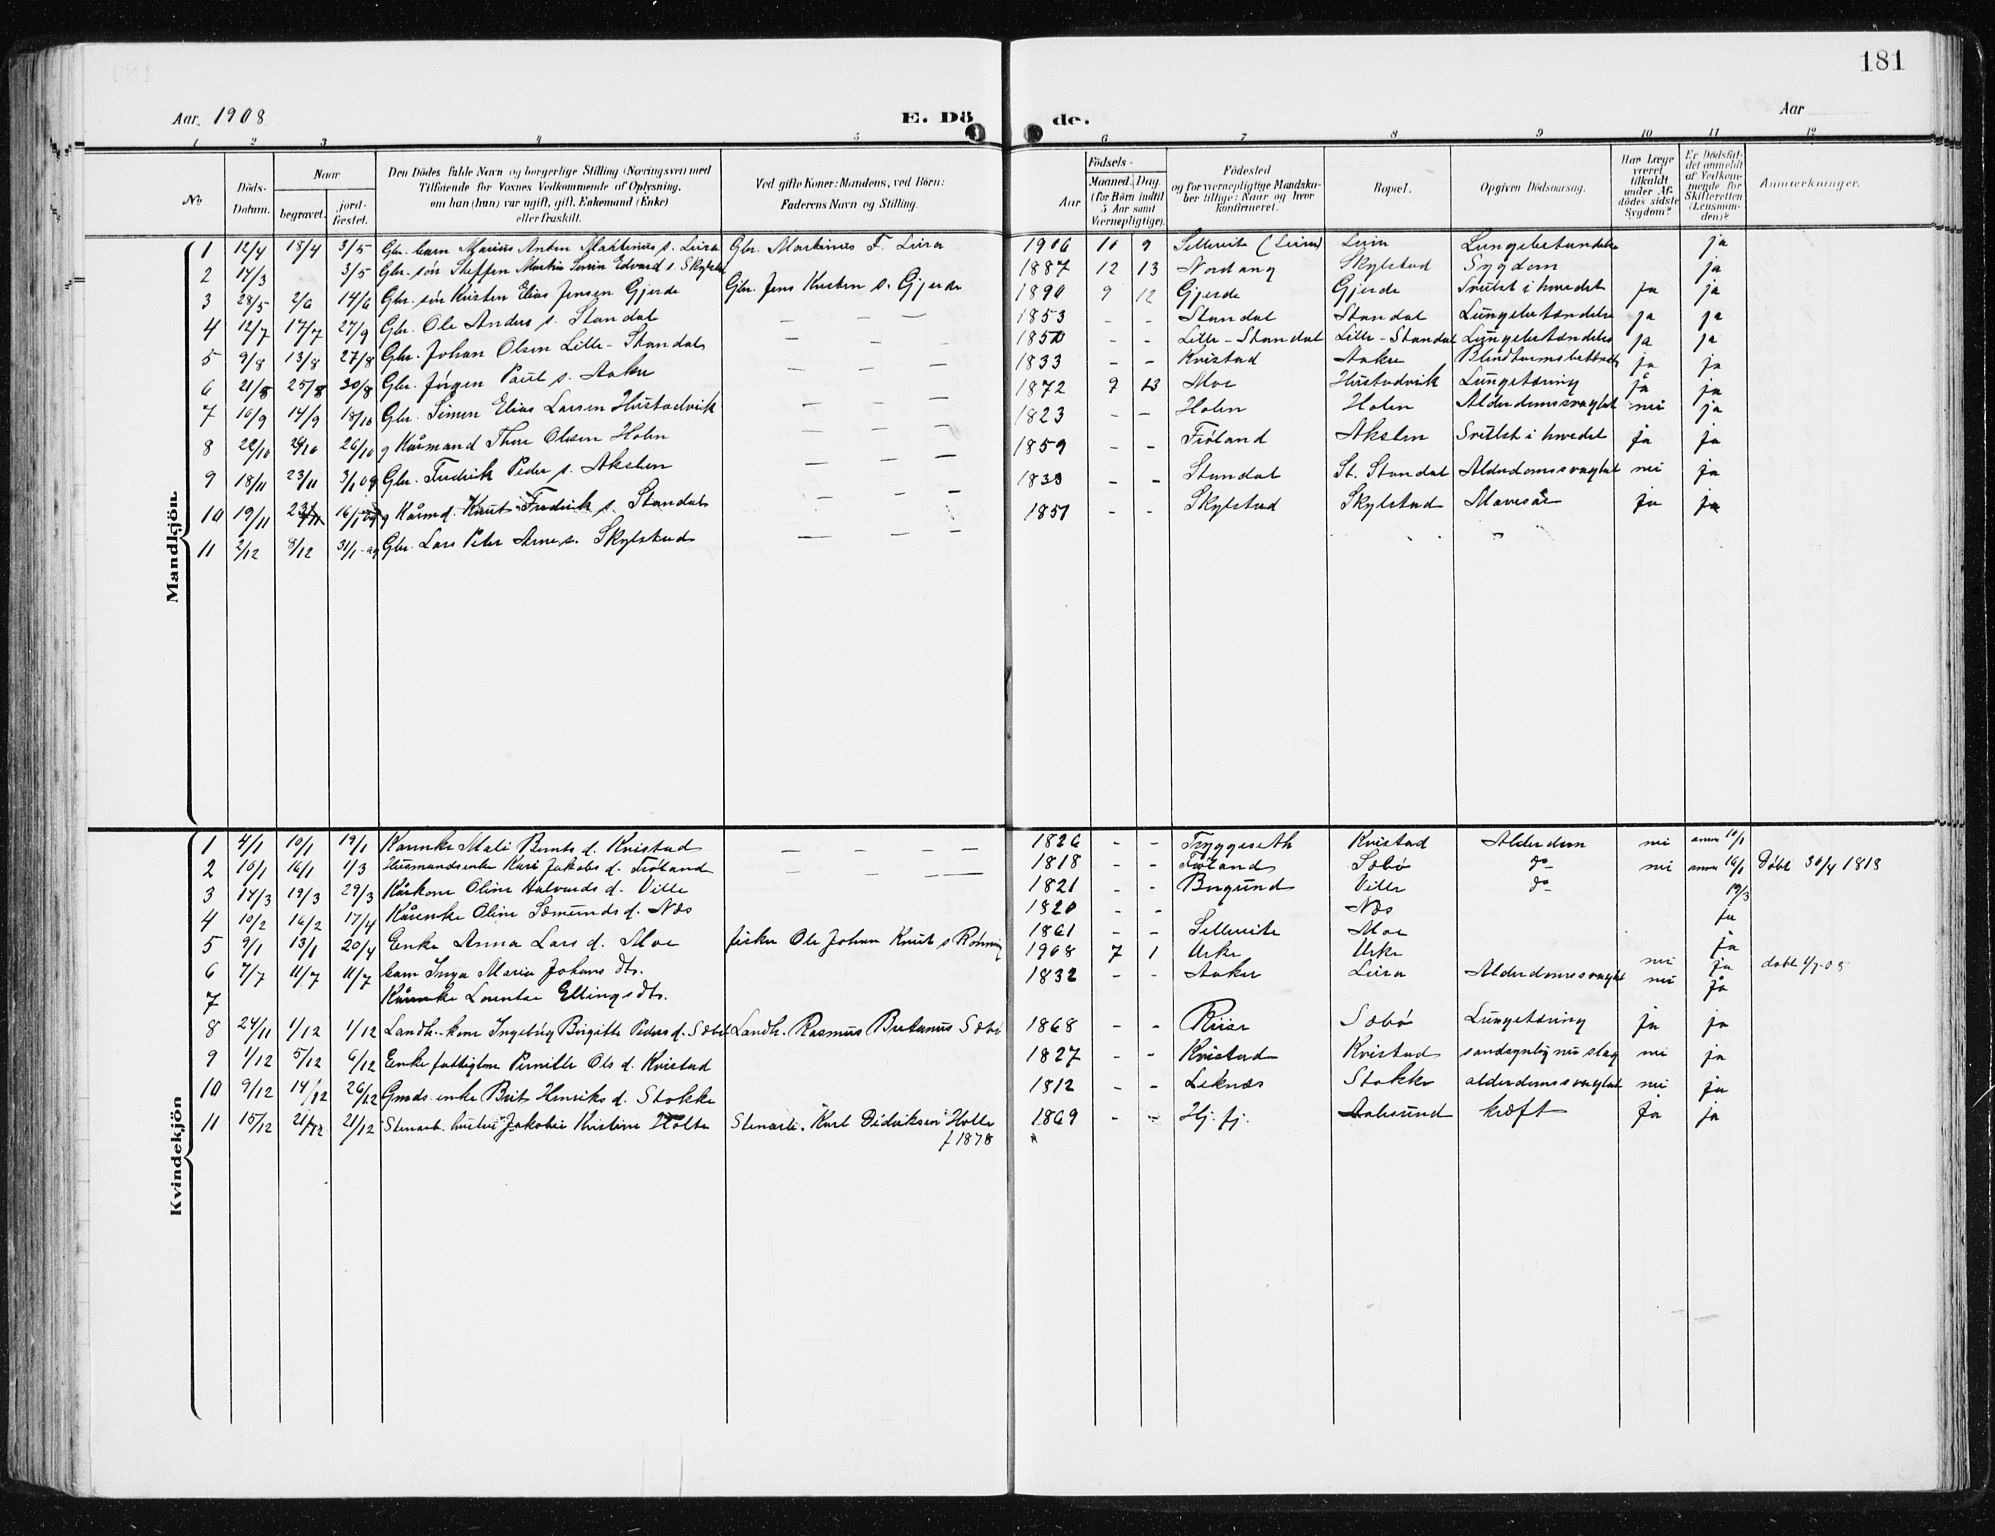 181
Aar 1908 E. Dö de. Aar
1 2 3 4 5 6 7 8 9 10 11 12
No
Döds-Datum.
Naar
begravet.
jord-fæstet.
Den Dödes fulde Navn og borgerlige Stilling (Næringsvei) med
Tilföiende for Voxnes Vedkommende af Oplysning,
om han (hun) var ugift, gift, Enkemand (Enke)
eller fraskilt.
Ved gifte Koner: Mandens, ved Börn:
Faderens Navn og Stilling.
Födsels-
Aar
Maaned. Dag.
(for Börn indtil
5 Aar samt
Værnepligtige).
Födested
og for værnepligtige Mandskaber tillige: Naar og hvor
konfirmeret.
Bopæl.
Opgiven Dödsaarsag.
Har Læge
været
tilkaldt
under Afdödes sidste
Sygdom?
Er Dödsfaldet anmeldt
af Vedkommende for
Skifteretten
(Lensmanden)?
Anmærkninger.
Mandkjön
1 12/4 18/4 3/5 Gbr. barn Marius Anton Martinus s. Leira Gbr. Martinus F. Leira 1906 10 9 Sellereite (Leira) Leira Lungebetændelse ja
2 14/3 3/5 Gbr. søn Steffen Martin Severin Edvard s. Skylstad 1887 12 13 Nordang Skylstad Sygdom ja
3 28/5 2/6 14/6 Gbr. søn Kristen Elias Jensen Gjerde Gbr. Jens Kristen s. Gjerde 1890 9 12 Gjerde Gjerde Svulst i hovedet ja ja
4 12/7 17/7 27/9 Gbr. Ole Anders s. Standal — — — 1853 - - Standal Standal Lungebetændelse ja ja
5 9/8 13/8 27/8 Gbr. Johan Olsen Lille-Standal — — — 1850 - - Lille-Standal Lille-Standal Lungebetændelse ja ja
6 21/8 25/8 30/8 Gbr. Jörgen Paul s. Aaker — — — 1833 - - Kvistad Aaker ja ja
7 10/9 14/9 18/10 Gbr. Simen Elias Larsen Hustadvik — — — 1872 9 13 Moe Hustadvik Lungetæring ja ja
8 22/10 26/10 g Kårmand Thore Olsen Holen — — — 1823 - - Holen Holen Alderdomssvaghet nei ja
9 18/11 23/11 3/1 09 Gbr. Fredrik Peder s. Akslen — — — 1859 - - Fröland Akslen Svulst i hovedet ja ja
10 19/11 23/11 16/1 09 g Kårmd. Knut Fredrik s. Standal — — — 1833 - - Standal St. Standal Alderdomssvaghet nei ja
11 2/12 8/12 31/1-09 Gbr. Lars Peter Arne s. Skylstad — — — 1857 - - Skylstad Skylstad Mavesår ja ja
Kvindekjön
1 4/1 10/1 19/1 Kårenke Mali Bernts d. Kvistad — — — 1826 - - Tryggeseth Kvistad Alderdom nei anm 10/1
2 10/1 16/1 1/3 Husmandsenke Kari Jakobs d. Fröland — — — 1818 - - Fröland Sæbö do nei anm 16/1 Døbt 30/4 1818
3 14/3 19/3 29/3 Kårkone Oline Halvards d. Ville 1821 - - Borgund Ville do 19/3
4 10/2 16/2 17/4 Kårenke Oline Sæmunds d. Næs 1820 - - Næs ja
5 9/1 13/1 20/4 Enke Anna Lars d. Moe 1861 - - Sellereite Moe ja
6 7/7 11/7 11/7 barn Inga Maria Johans dtr. fisker Ole Johan Knut s Rönning 1908 7 1 Urke Urke nei ja døbt 4/7-08
7 Kårenke Lorentse Ellings dtr. 1832 - - Aaker Leira Alderdomssvaghet nei ja
8 24/11 1/12 1/12 Landh.-kone Ingebörg Birgitte Peders d. Sæbö Landh. Rasmus Bertanus Sæbö 1868 - - Riise Sæbö Lungetæring ja ja
9 1/12 5/12 6/12 Enke fattiglem Pernille Ols d. Kvistad 1827 - - Kvistad Kvistad sandsynlig nu slag nei ja
10 9/12 14/12 26/12 Gmds. enke Brit Henriks d. Stokke 1812 - - Leknæs Stokke alderdomssvaghet nei ja
11 15/12 21/12 21/12 Stenarb. hustru Jakobie Kristine Holte Stenarb. Karl Didriksen Holte 1869 - - Hj. fj. Aalesund kræft ja ja
f 1878